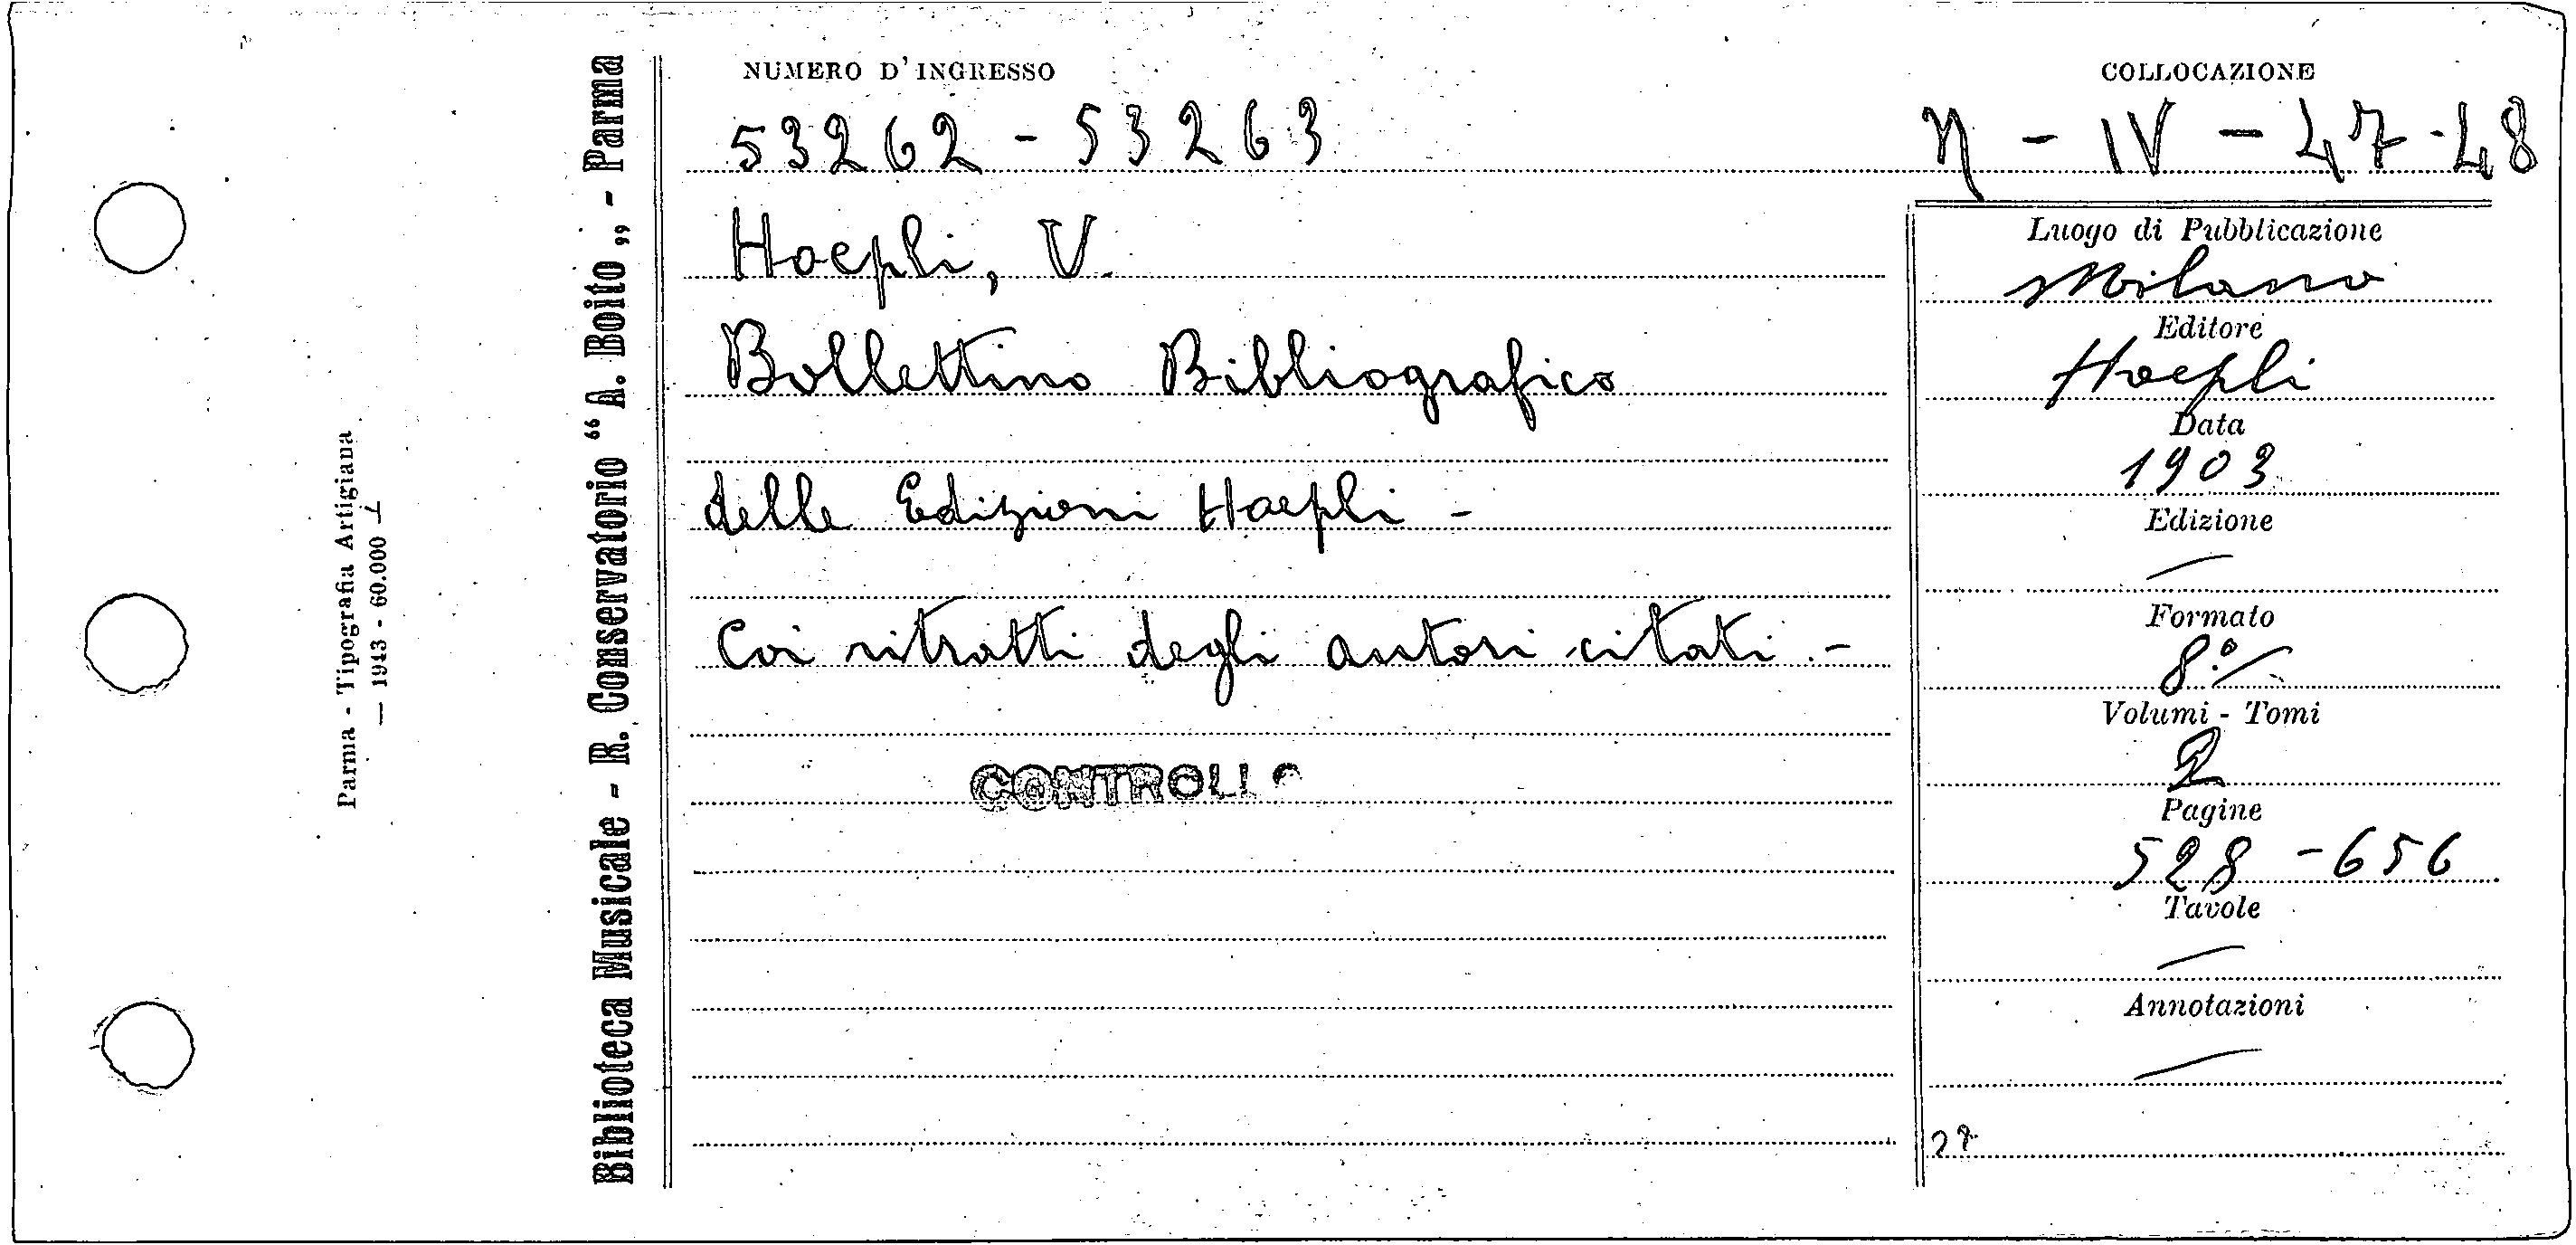 NUMERO D'INGRESSO
53262 - 53263
COLLOCAZIONE
η - IV - 47-48
Hoepli, U.
Bollettino Bibliografico
delle Edizioni Hoepli -
Coi ritratti degli autori citati -
CONTROLLO
Luogo di Pubblicazione
Milano
Editore
Hoepli
Data
1903
Edizione
Formato
8º
Volumi - Tomi
2
Pagine
528 - 656
Tavole
Annotazioni
Biblioteca Musicale - R. Conservatorio "A. Boito" - Parma
Parma - Tipografia Artigiana
— 1943 - 60.000